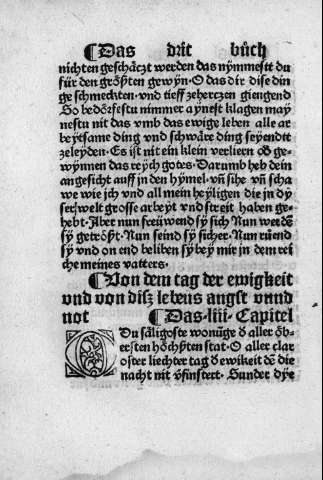 ¶Das drit bůch
nichten geschåczt werden das nÿmmestt du
für den grôsten gewÿn. O das dir dise din
ge schmeckten. vnd tieff zeherczen giengend
So bedôrfestu nimmer aÿnest klagen maÿ
nestu nit das vmb das ewige leben alle ar
beÿtsame ding vnd schwåre ding seÿendtt
zeleÿden. Es ist nit ein klein verlieren oð ge
wÿnnen das reÿch gotes. Darumb heb dein
angesicht auff in den hÿmel. vñ sihe vñ scha
we wie jch vnd all mein heÿligen die in dÿ
ser welt grosse arbeÿt vnd streit haben ge
hebt. Aber nun freüwend sÿ sich Nun werdẽ
sÿ getrôst. Nun seind sÿ sicher. Nun rüend
sÿ vnd on end beliben sÿ beÿ mir in dem rei
che meines vatters.
¶Von dem tag der ewigkeit
vnd von disz lebens angst vnnd
not ¶Das. liii. Capitel
O Du såligoste wonũge ð aller ôb
ersten hôchstẽn stat. O aller clar
oster liechter tag ð ewikeit dẽ die
nacht nit vfinstert. Sunder dÿe